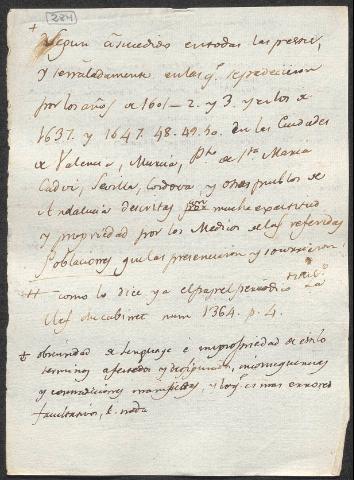 224
+
segun a sucedido en todas las pestes,
y señaladamente en las q.e se padecieron
por los años de 1601 — 2. y 3. y en los de
1637. y 1647. 48. 49. 50. en las Ciudades
de Valencia, Murcia, Pto de Sta Maria
Cadiz, Sevilla, Cordova, y otros pueblos de
Andalucia descritas con mucha exactitud
y propriedad por los Medicos de las referidas
Poblaciones que las presenciaron y
++ como lo dice ya el papel periodico La
Clef du cabinet num 1364. p. 4.
+ obscuridad de lenguage è impropriedad de estilo
terminos afectados y desfigurados, inconsequencias
y contradiciones manifiestas, y lo q.e es mas errores
facultativos, &. nada